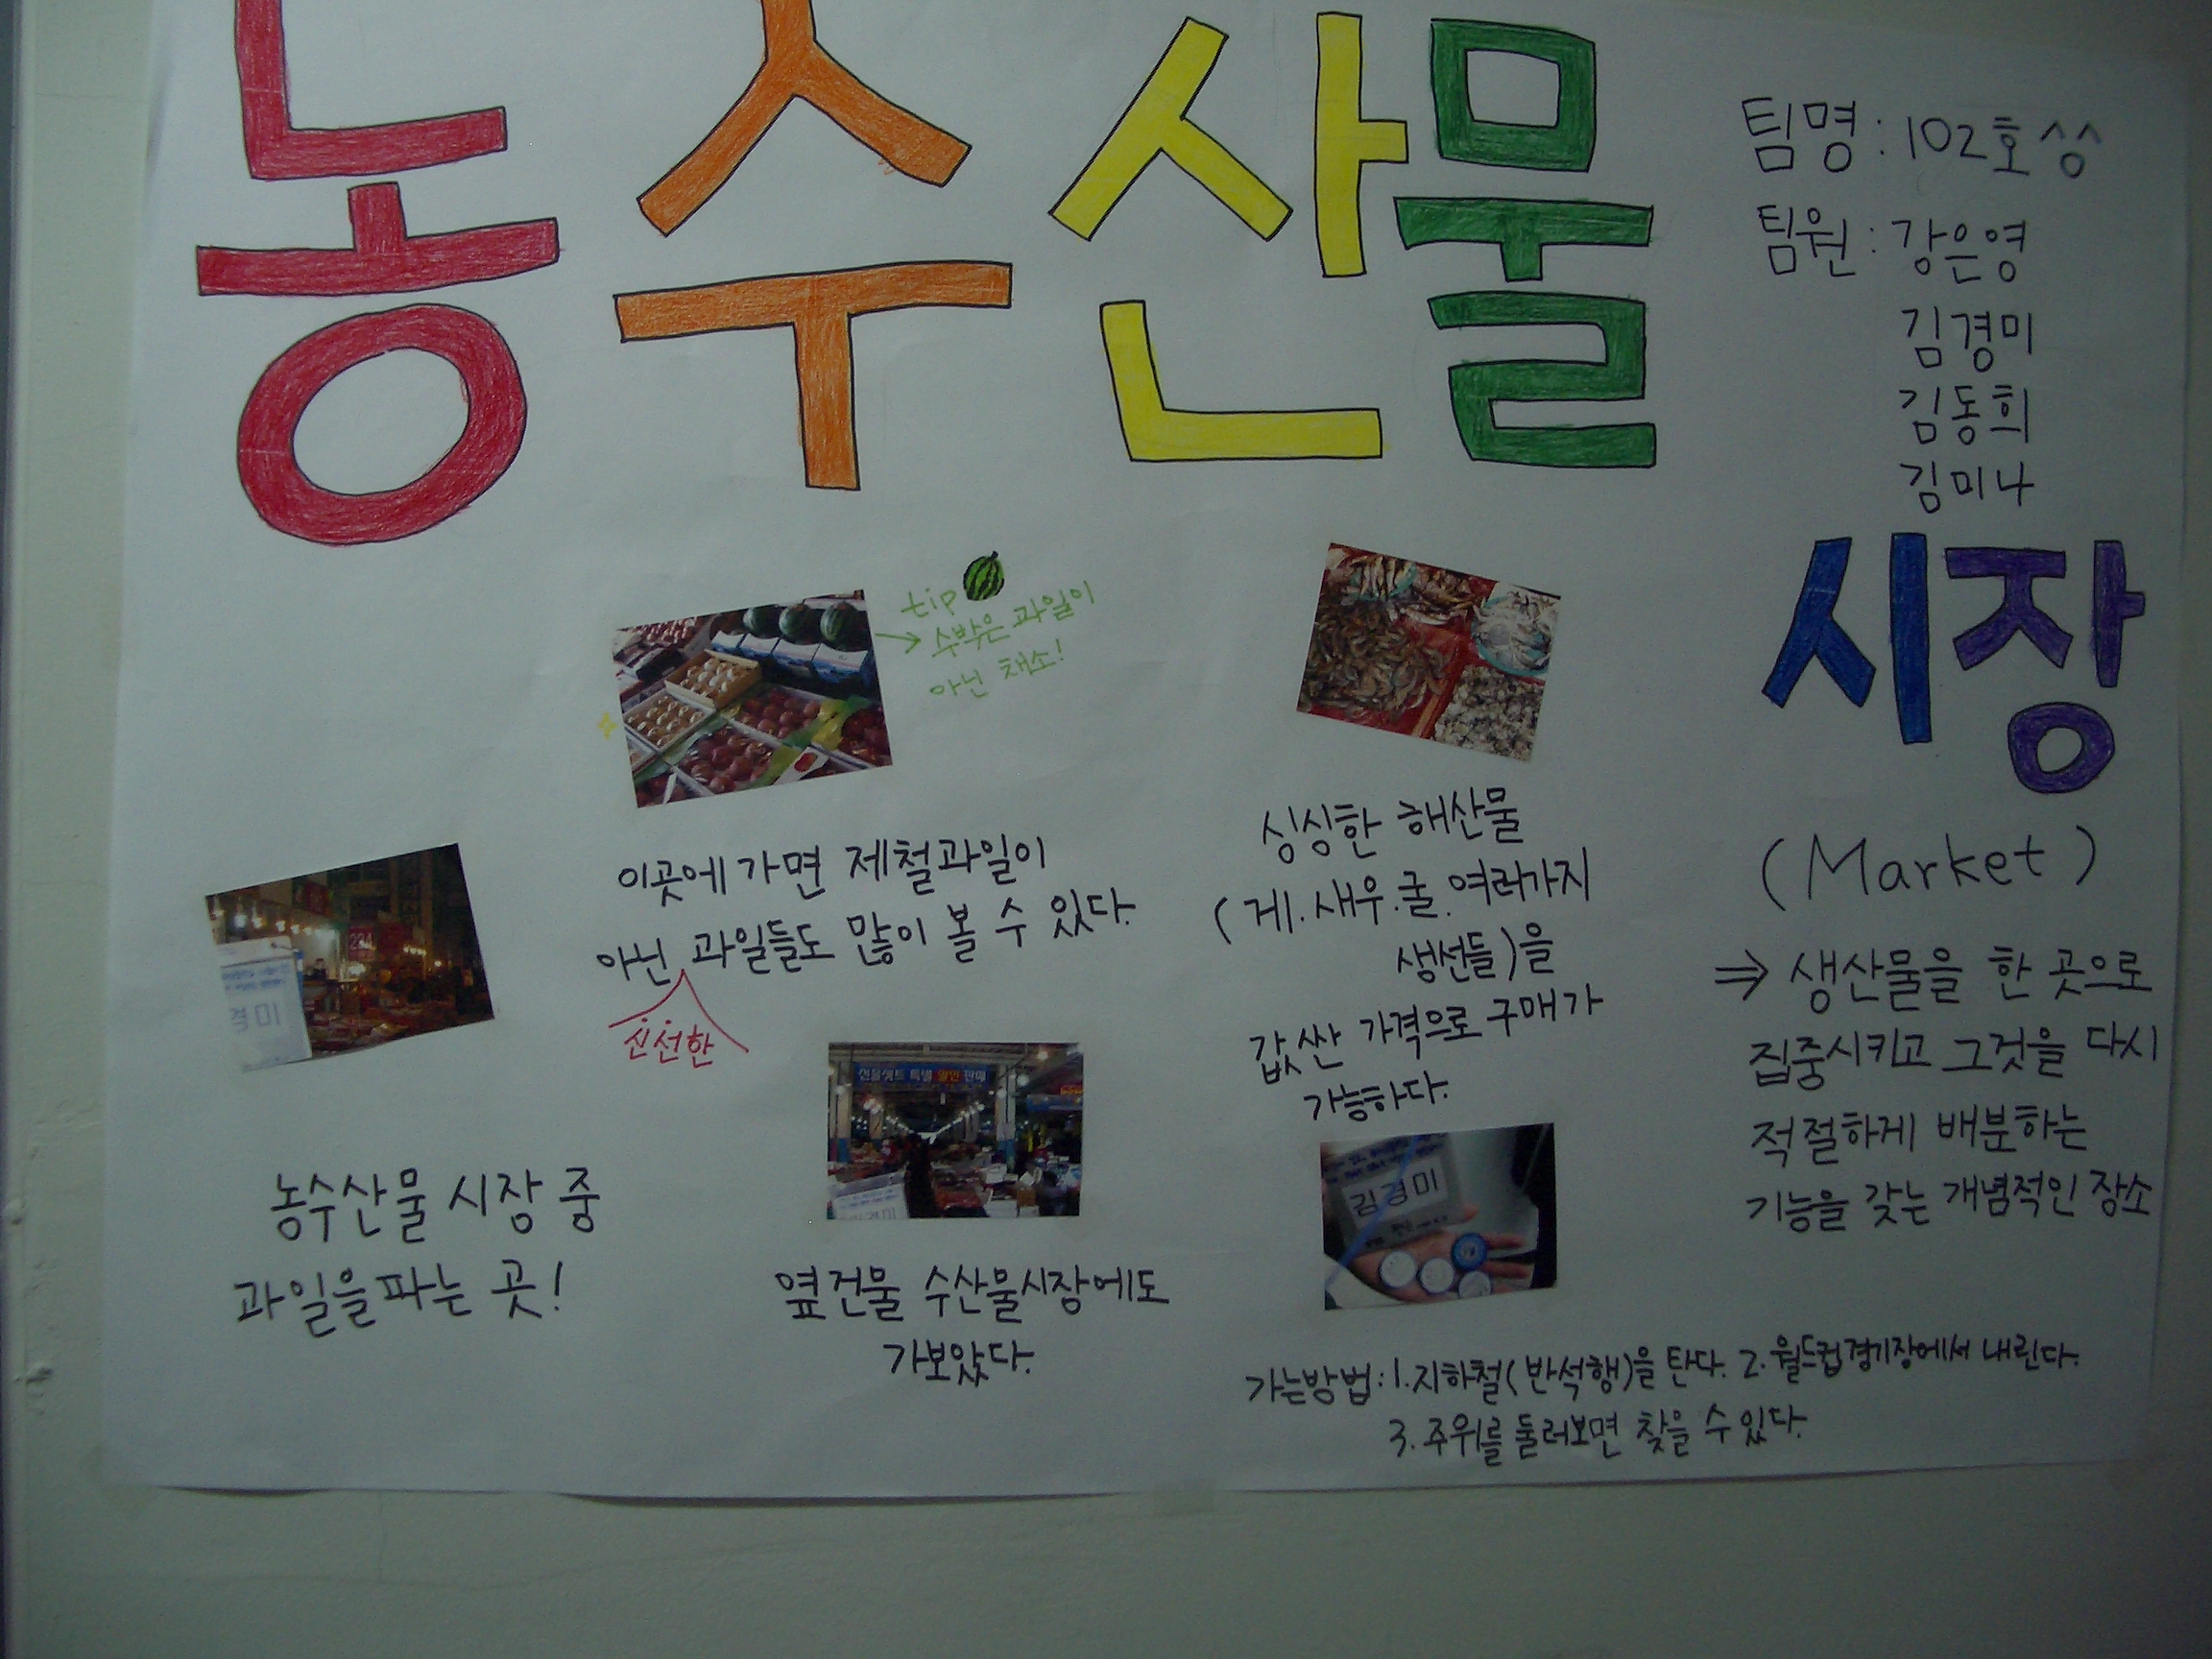 농수산물
팀명 : 102호 ^^
팀원 : 강은영
김경미
김동희
김미나
시장
(Market)
⇒ 생산물을 한 곳으로
집중시키고 그것을 다시
적절하게 배분하는
기능을 갖는 개념적인 장소
tip
→ 수박은 과일이
아닌 채소!
이곳에 가면 제철과일이
아닌 과일들도 많이 볼 수 있다.
신선한
싱싱한 해산물
(게.새우.굴.여러가지
생선들)을
값싼 가격으로 구매가
가능하다.
224
경미
농수산물 시장 중
과일을 파는 곳!
선물셋트 특별 할인 판매
옆건물 수산물시장에도
가보았다.
김경미
가는방법 : 1. 지하철(반석행)을 탄다. 2. 월드컵경기장에서 내린다.
3. 주위를 둘러보면 찾을 수 있다.